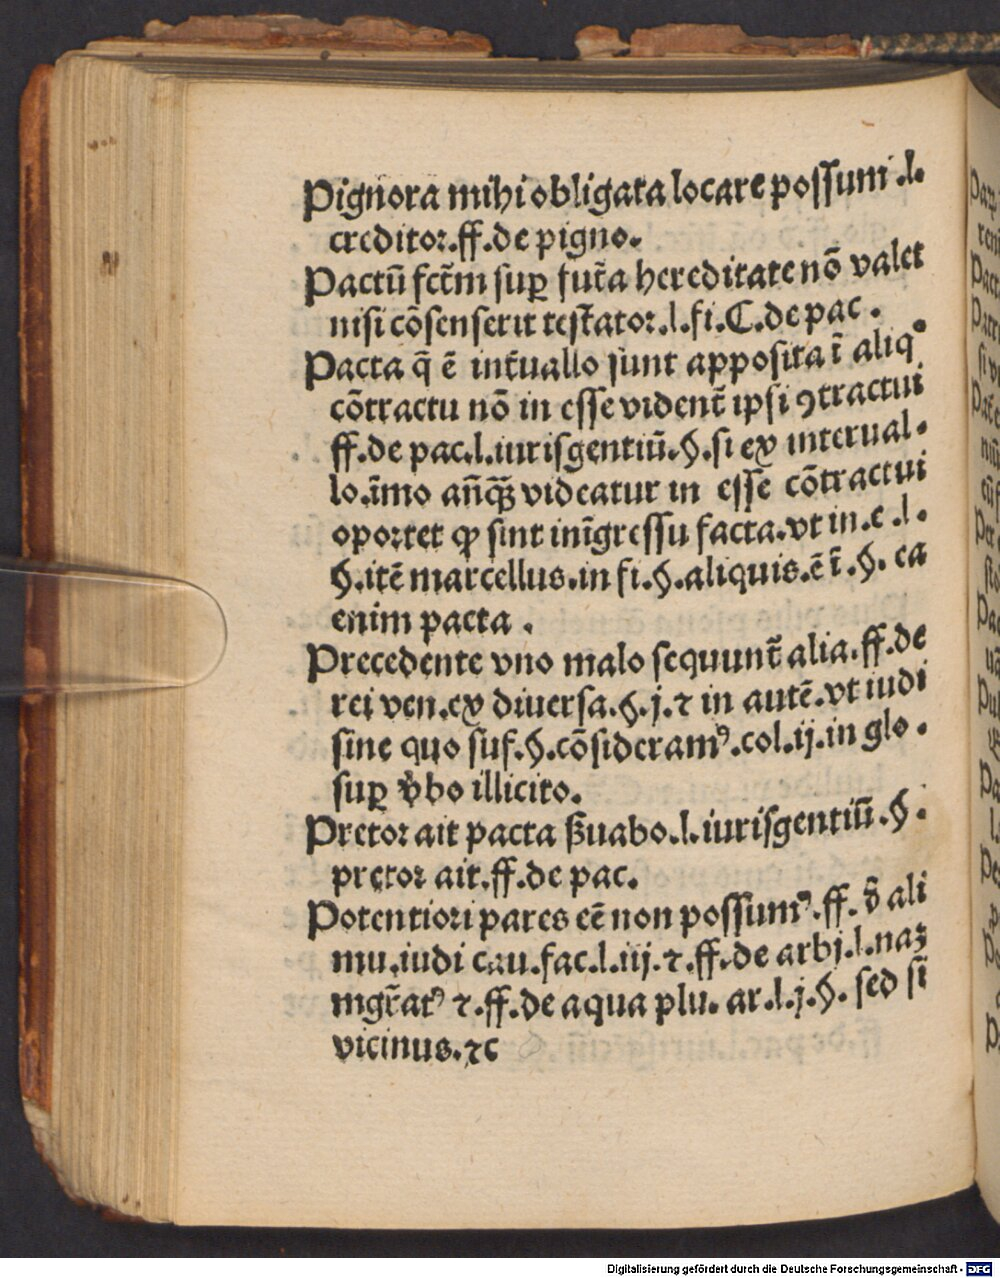 Pignora mihi obligata locare possum .l.
creditor.ff.de pigno.
Pactū fctm̄ suꝑ fut̄a hereditate nō valet
nisi cōsenserit testator.l.fi.C.de pac.
Pacta q̄ ē int̄uallo sunt apposita ī aliqº
cōtractu nō in esse vident̄ ipsi ꝯtractui
ff.de pac.l.iurisgentiū.§.si ex interual-
lo.īmo añqꝫ videatur in esse cōtractui
oportet ꝙ sint inīgressu facta.vt in.e.l.
§.itē marcellus.in fi.§.aliquis.ē ī.§. ea
enim pacta.
Precedente vno malo sequunt̄ alia.ff.de
rei ven.ex diuersa.§.j.⁊ in autē.vt iudi
sine quo suf.§.cōsideramꝰ.col.ij.in glo.
suꝑ v̄bo illicito.
Pretor ait pacta ẞuabo.l.iurisgentiū.§.
pretor ait.ff.de pac.
Potentiori pares eē non possumꝰ.ff. d̄ ali
mu.iudi cau.fac.l.iij.⁊.ff.de arbi.l.naꝫ
mgr̄atꝰ ⁊.ff.de aqua plu. ar.l.j.§. sed si
vicinus.⁊c
Digitalisierung gefördert durch die Deutsche Forschungsgemeinschaft - DFG